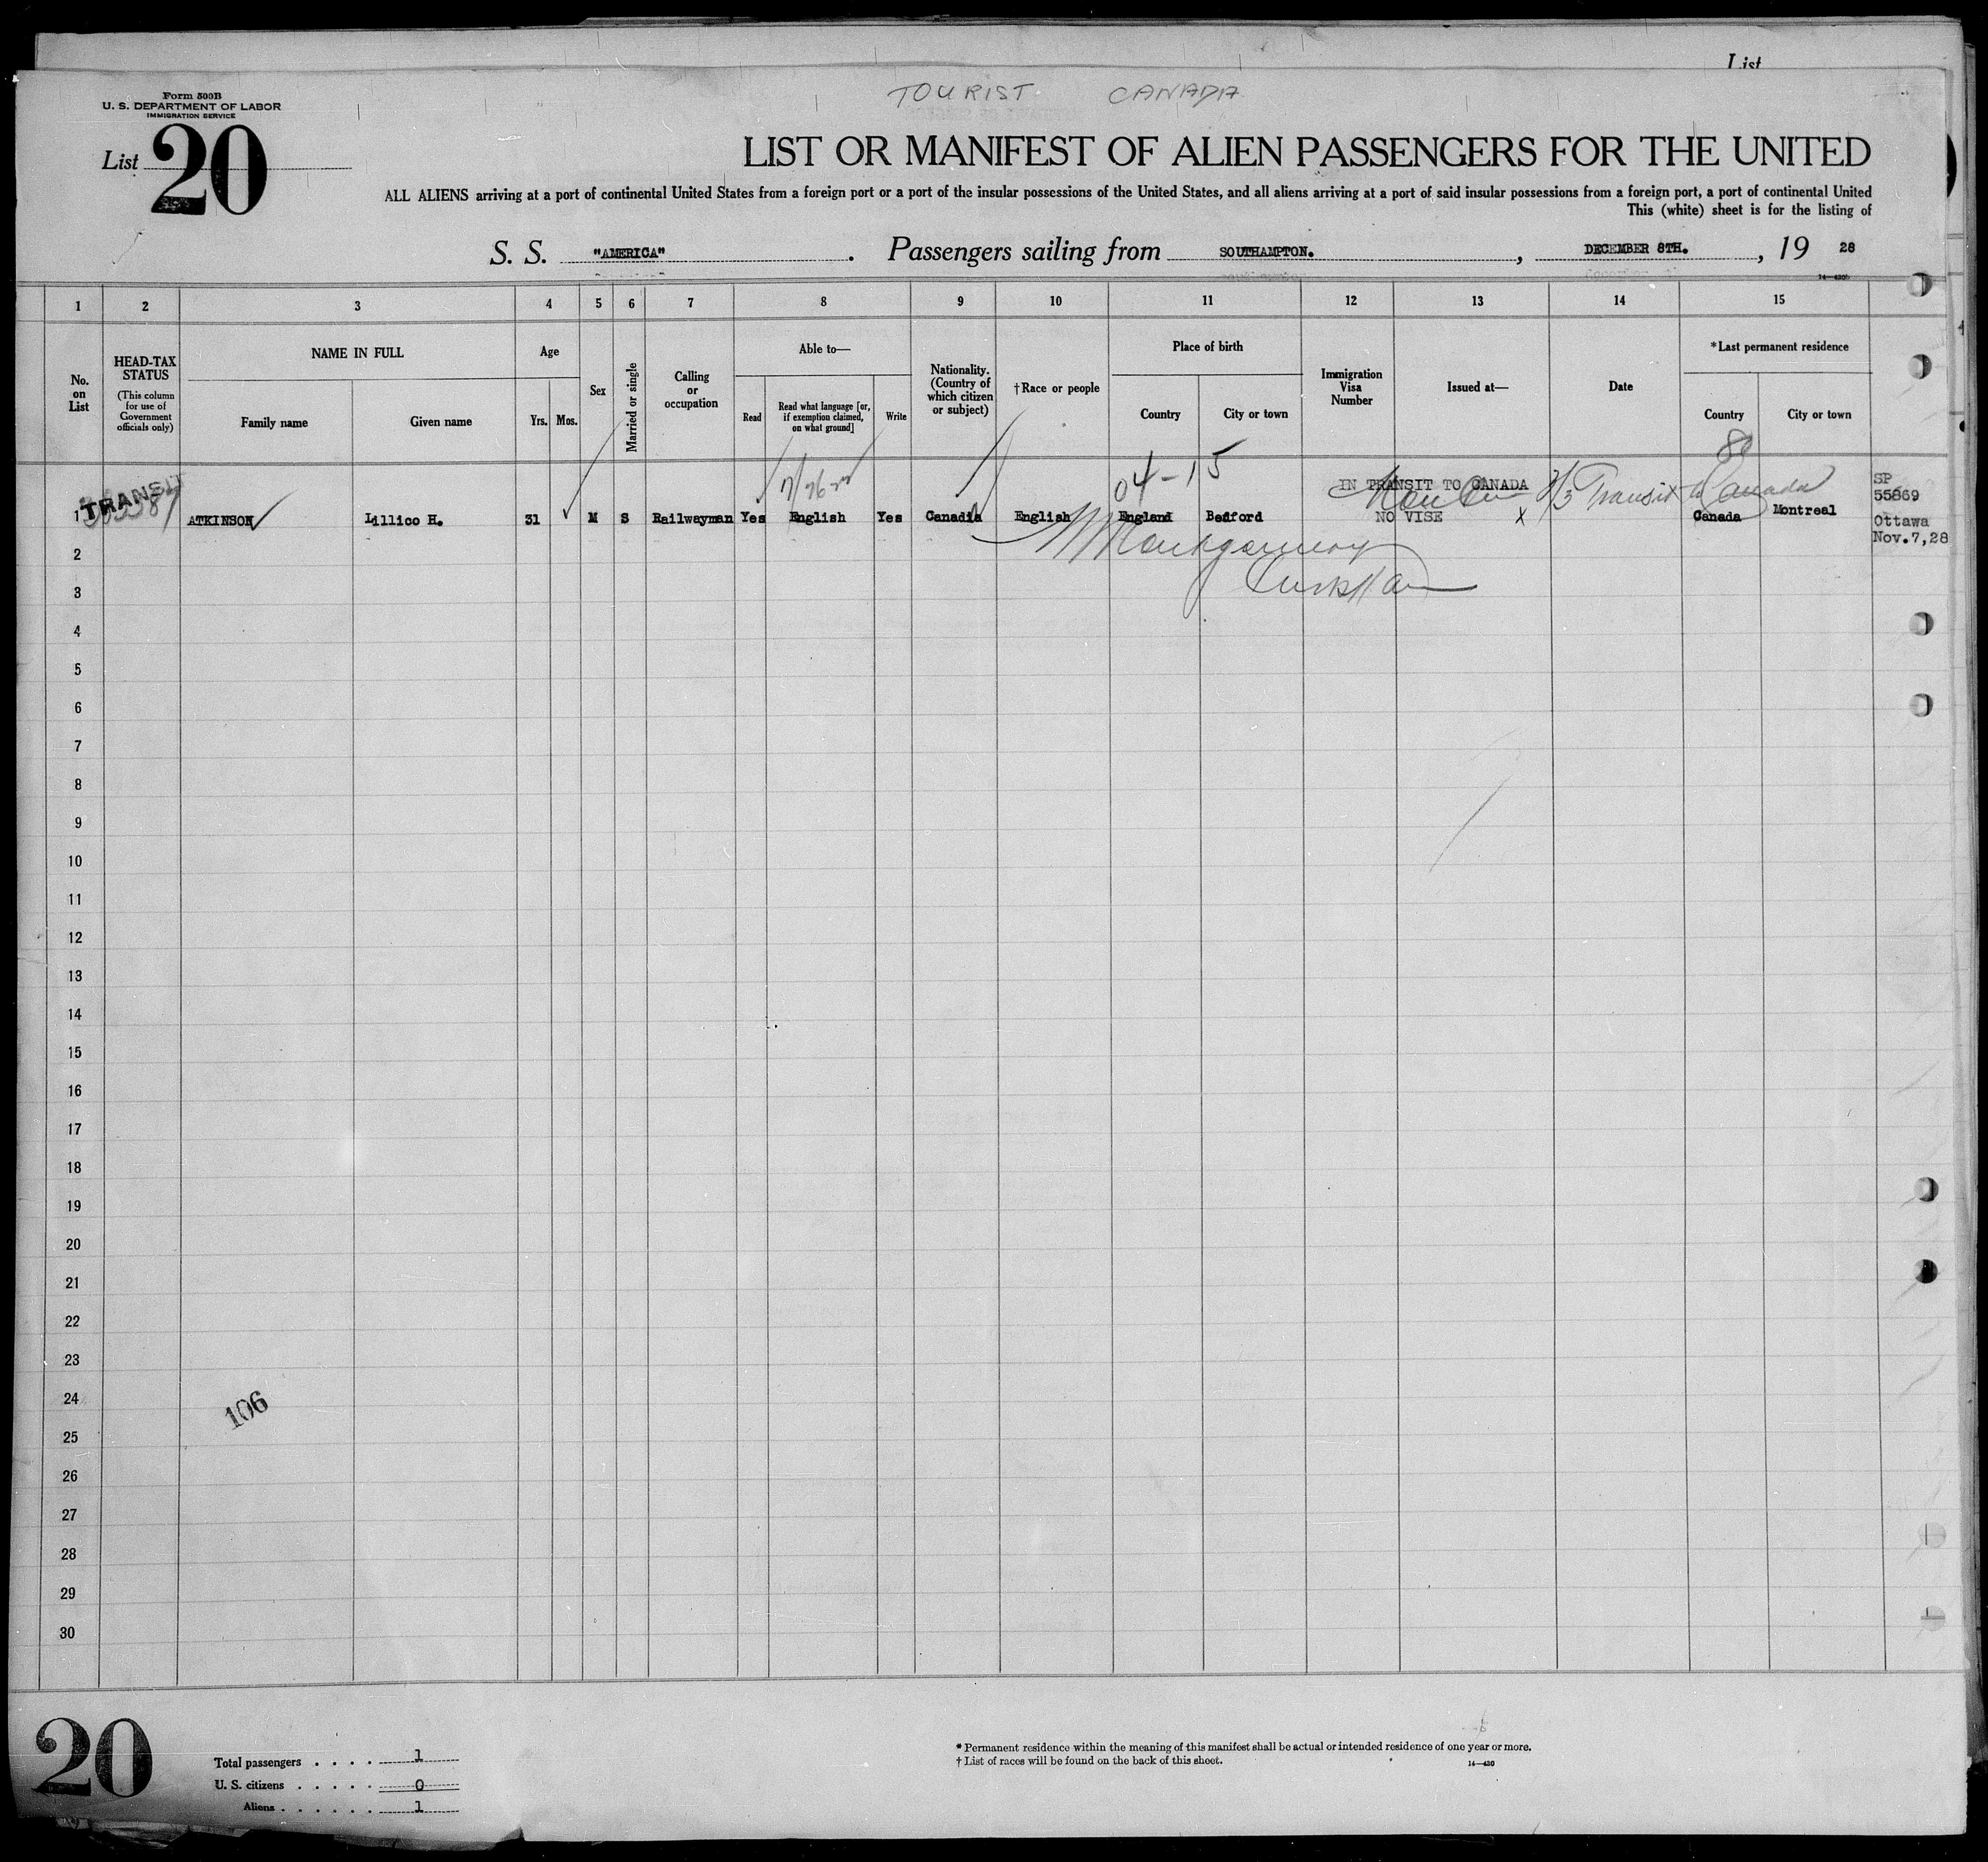 List
TOURIST CANADA
Form 500B
U. S. DEPARTMENT OF LABOR
IMMIGRATION SERVICE
List 20
LIST OR MANIFEST OF ALIEN PASSENGERS FOR THE UNITED
ALL ALIENS arriving at a port of continental United States from a foreign port or a port of the insular possessions of the United States, and all aliens arriving at a port of said insular possessions from a foreign port, a port of continental United
This (white) sheet is for the listing of
S. S. "AMERICA". Passengers sailing from SOUTHAMPTON., DECEMBER 8TH., 19 28
1 2 3 4 5 6 7 8 9 10 11 12 13 14 15
No. on List
HEAD-TAX STATUS
(This column for use of Government officials only)
NAME IN FULL
Family name Given name
Age
Yrs. Mos.
Sex
Married or single
Calling or occupation
Able to—
Read
Read what language [or, if exemption claimed, on what ground]
Write
Nationality. (Country of which citizen or subject)
†Race or people
Place of birth
Country City or town
Immigration Visa Number
Issued at—
Date
*Last permanent residence
Country City or town
80
TRANSIT
04-15
IN TRANSIT TO CANADA
Transit to Canada
SP
55869
1 ATKINSON Lillico H. 31 M S Railwayman Yes English Yes Canadia English England Bedford NO VISE X Canada Montreal
Ottawa
Nov.7,28
Montgomery
2
3
4
5
6
7
8
9
10
11
12
13
14
15
16
17
18
19
20
21
22
23
24
106
25
26
27
28
29
30
20
Total passengers . . . . 1
U. S. citizens . . . . . 0
Aliens . . . . . . 1
* Permanent residence within the meaning of this manifest shall be actual or intended residence of one year or more.
† List of races will be found on the back of this sheet.
14—430